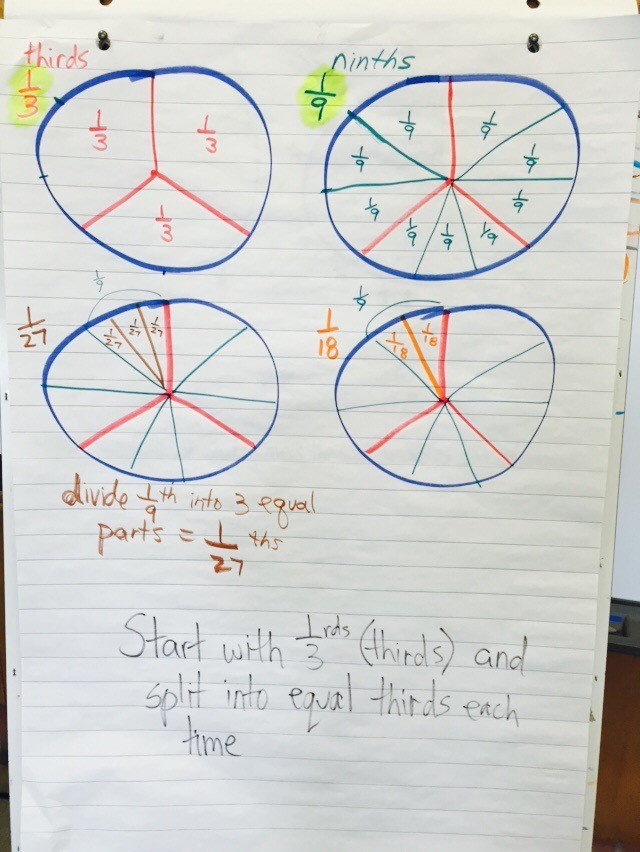 thirds
1/3
1/3 1/3
1/3
ninths
1/9
1/9 1/9
1/9 1/9
1/9 1/9
1/9 1/9 1/9
1/9
1/27
1/27 1/27 1/27
1/9
1/18
1/18 1/18
divide 1/9 th into 3 equal
parts = 1/27 ths
Start with 1/3 rds (thirds) and
split into equal thirds each
time